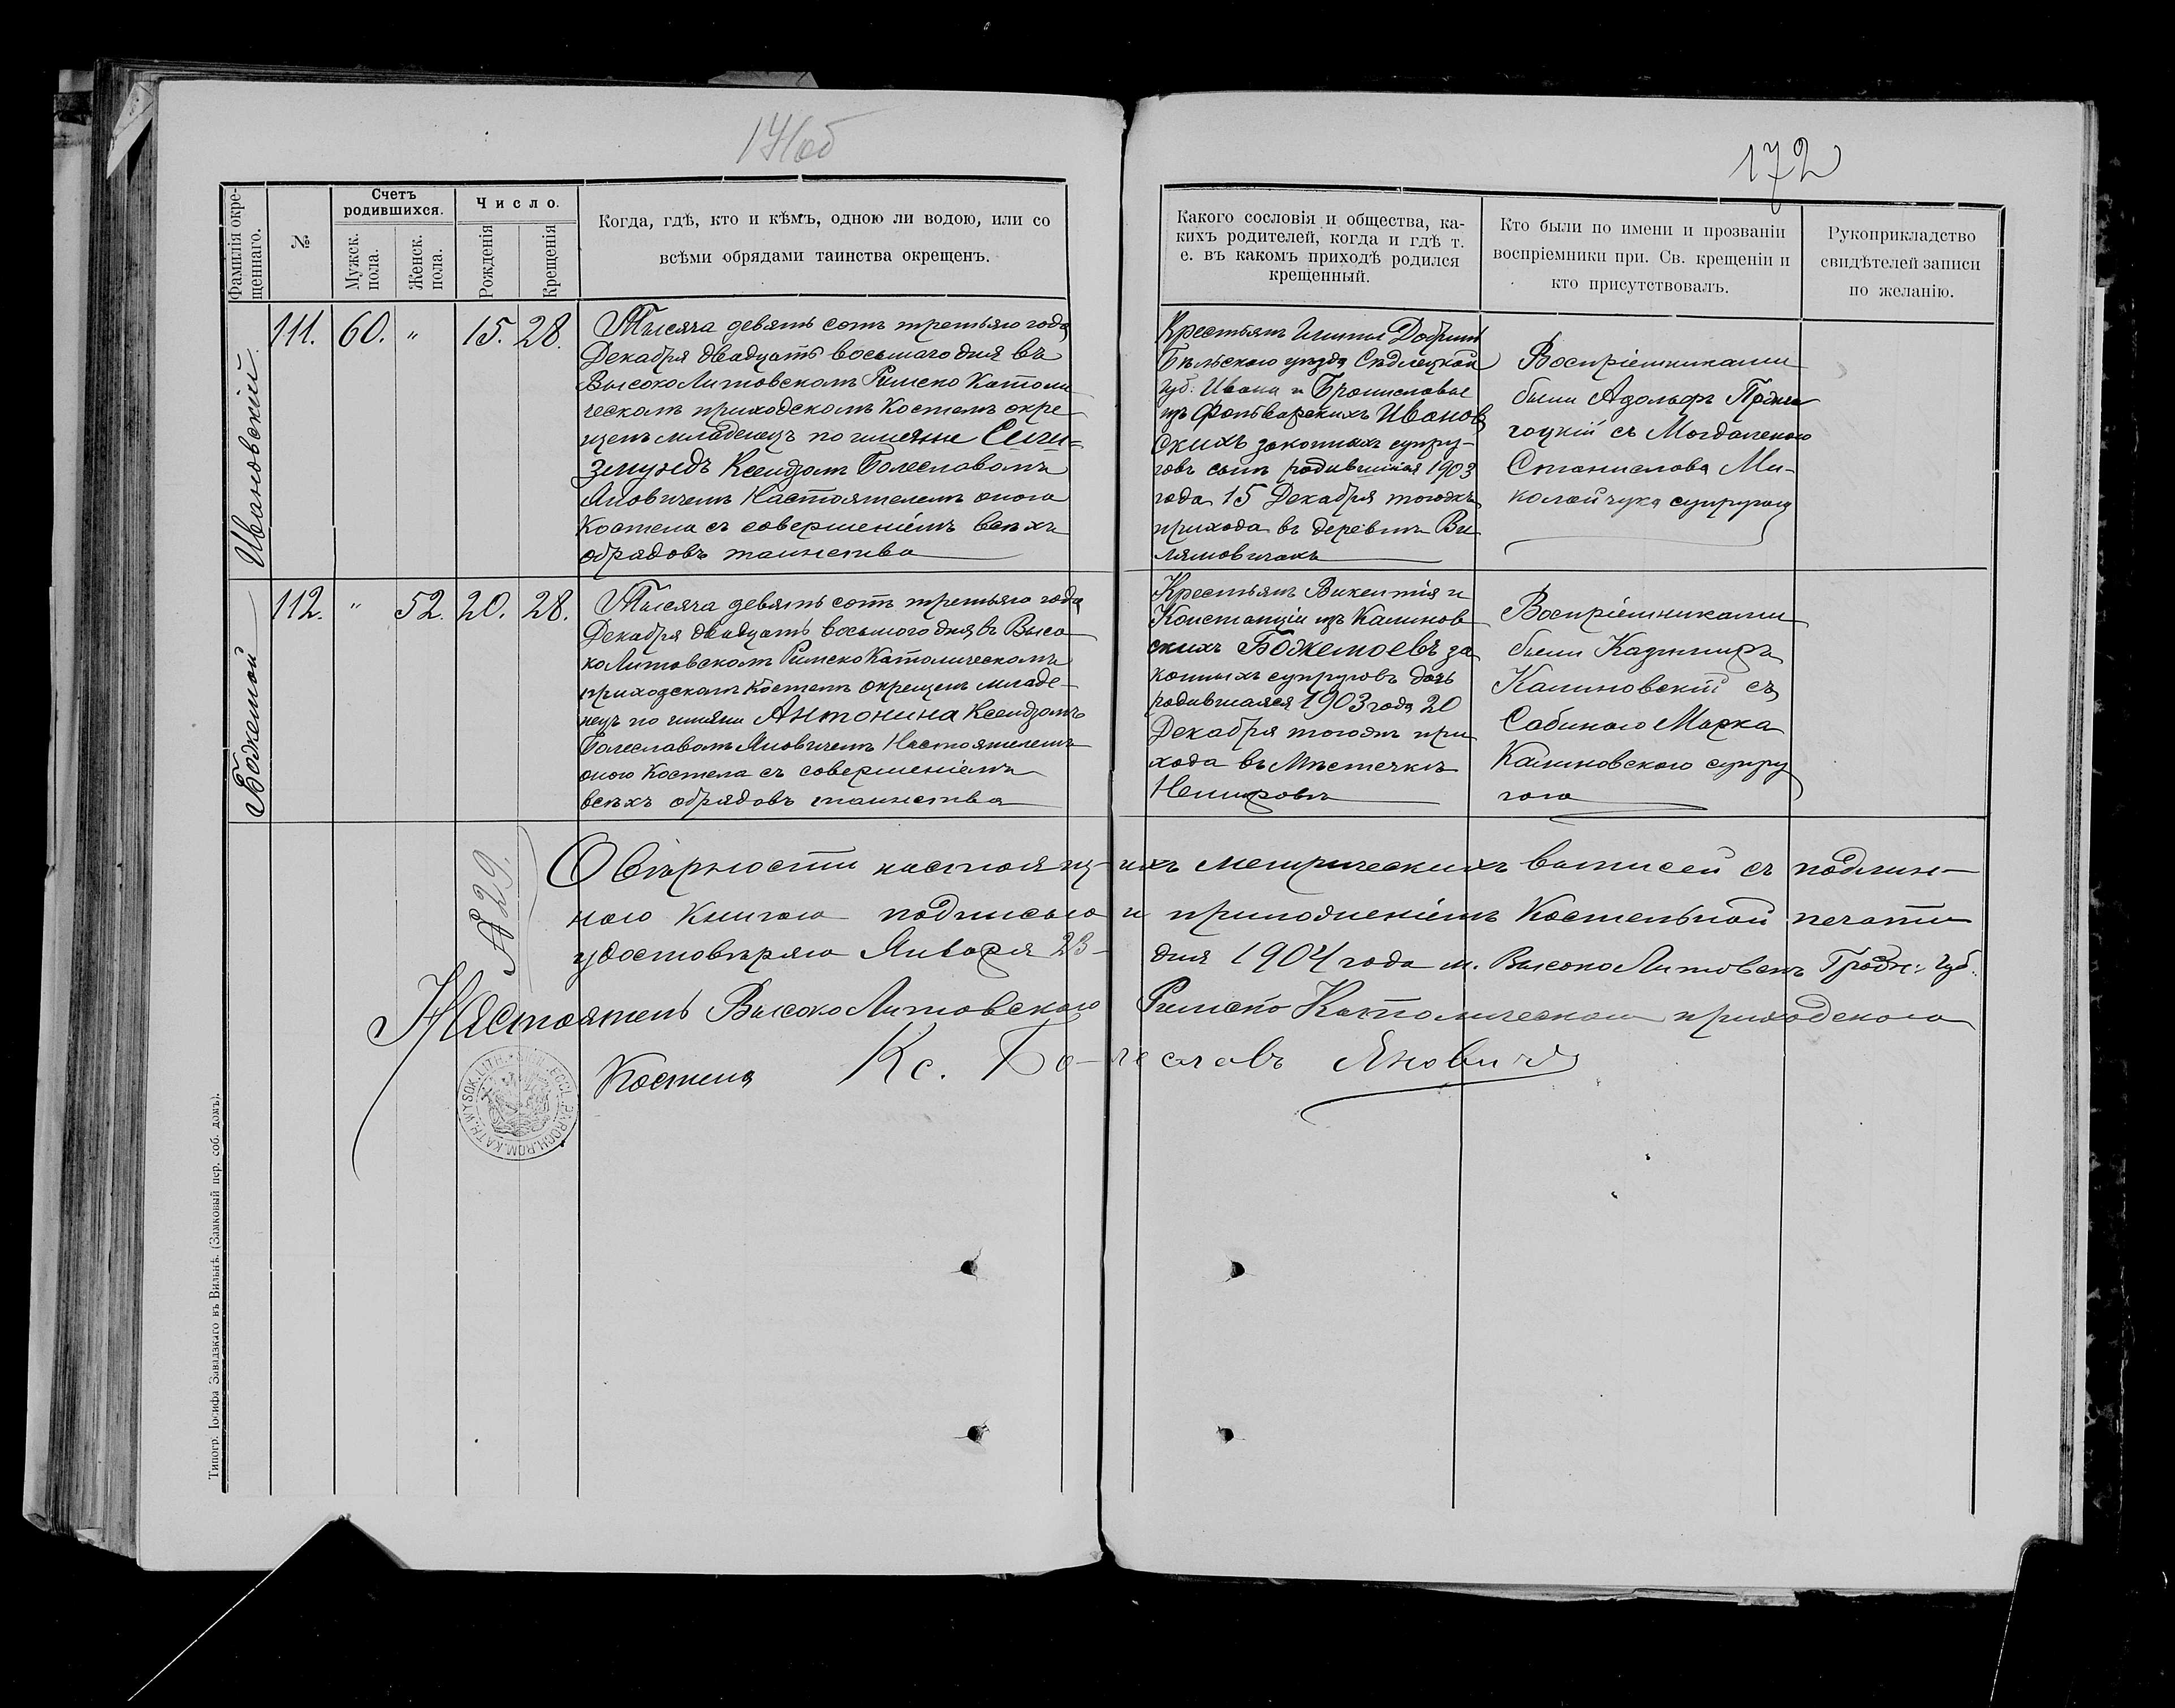 171об
172
Фамилія окре-
щеннаго.
№
Счетъ
родившихся.
Мужск.
пола.
Женск.
пола.
Число.
Рожденія
Крещенія
Когда, гдѣ, кто и кѣмъ, одною ли водою, или со
всѣми обрядами таинства окрещенъ.
Какого сословія и общества, ка-
кихъ родителей, когда и гдѣ т.
е. въ какомъ приходѣ родился
крещенный.
Кто были по имени и прозваніи
воспріемники при. Св. крещеніи и
кто присутствовалъ.
Рукоприкладство
свидѣтелей записи
по желанію.
Ивановскій
111. 60. " 15. 28.
Тысяча девять сотъ третьяго года
Декабря двадцать восьмаго дня въ
Высоко Литовскомъ Римско Католи
ческомъ приходскомъ Костелѣ окре
щенъ младенецъ по имени Сиги=
змундъ Ксендзомъ Болеславомъ
Яновичемъ Настоятелемъ оного
Костела съ совершеніемъ всѣхъ
обрядовъ таинства
Крестьянъ Гмины
Бѣльского уѣзда Сѣдлецкой
Губ. Ивана и Брониславы
изъ Фольварскихъ Иванов
скихъ законныхъ супру-
говъ сынъ родившійся 1903
года 15 Декабря тогожъ
прихода въ деревнѣ Ви
лямовичахъ
Воспріемниками
были Адольфъ
съ Магдаленою
Станислава Ми-
колайчука супругою
Божемой
112. " 52. 20. 28.
Тысяча девять сотъ третьяго года
Декабря двадцать восьмого дня въ Высо
ко Литовскомъ Римско Католическомъ
приходскомъ Костелѣ окрещенъ младе-
нецъ по имени Антонина Ксендзомъ
Болеславомъ Яновичемъ Настоятелемъ
оного Костела съ совершеніемъ
всѣхъ обрядовъ таинства
Крестьянъ Викентія и
Констанціи изъ Калинов
скихъ Божемоевъ за
конныхъ супруговъ дочь
родившаяся 1903 года 20
Декабря тогожъ при
хода въ Мѣстечкѣ
Немировѣ
Воспріемниками
были Казиміръ
Калиновскій съ
Сабиною Марка
Калиновского супру
гою
№ 29.
О вѣрности настоящихъ метрическихъ выписей съ подлин-
ною книгою подписью и приложеніемъ Костельной печати
удостовѣряю Января 23- дня 1904 года м. Высоко Литовскъ Гродн: Губ.
Настоятель Высоко Литовского Римско Католическаго приходского
Костела Кс. Болеславъ Яновичъ
Типогр. Іосифа Завадзкаго въ Вильнѣ. (Замковый пер. соб. домъ).